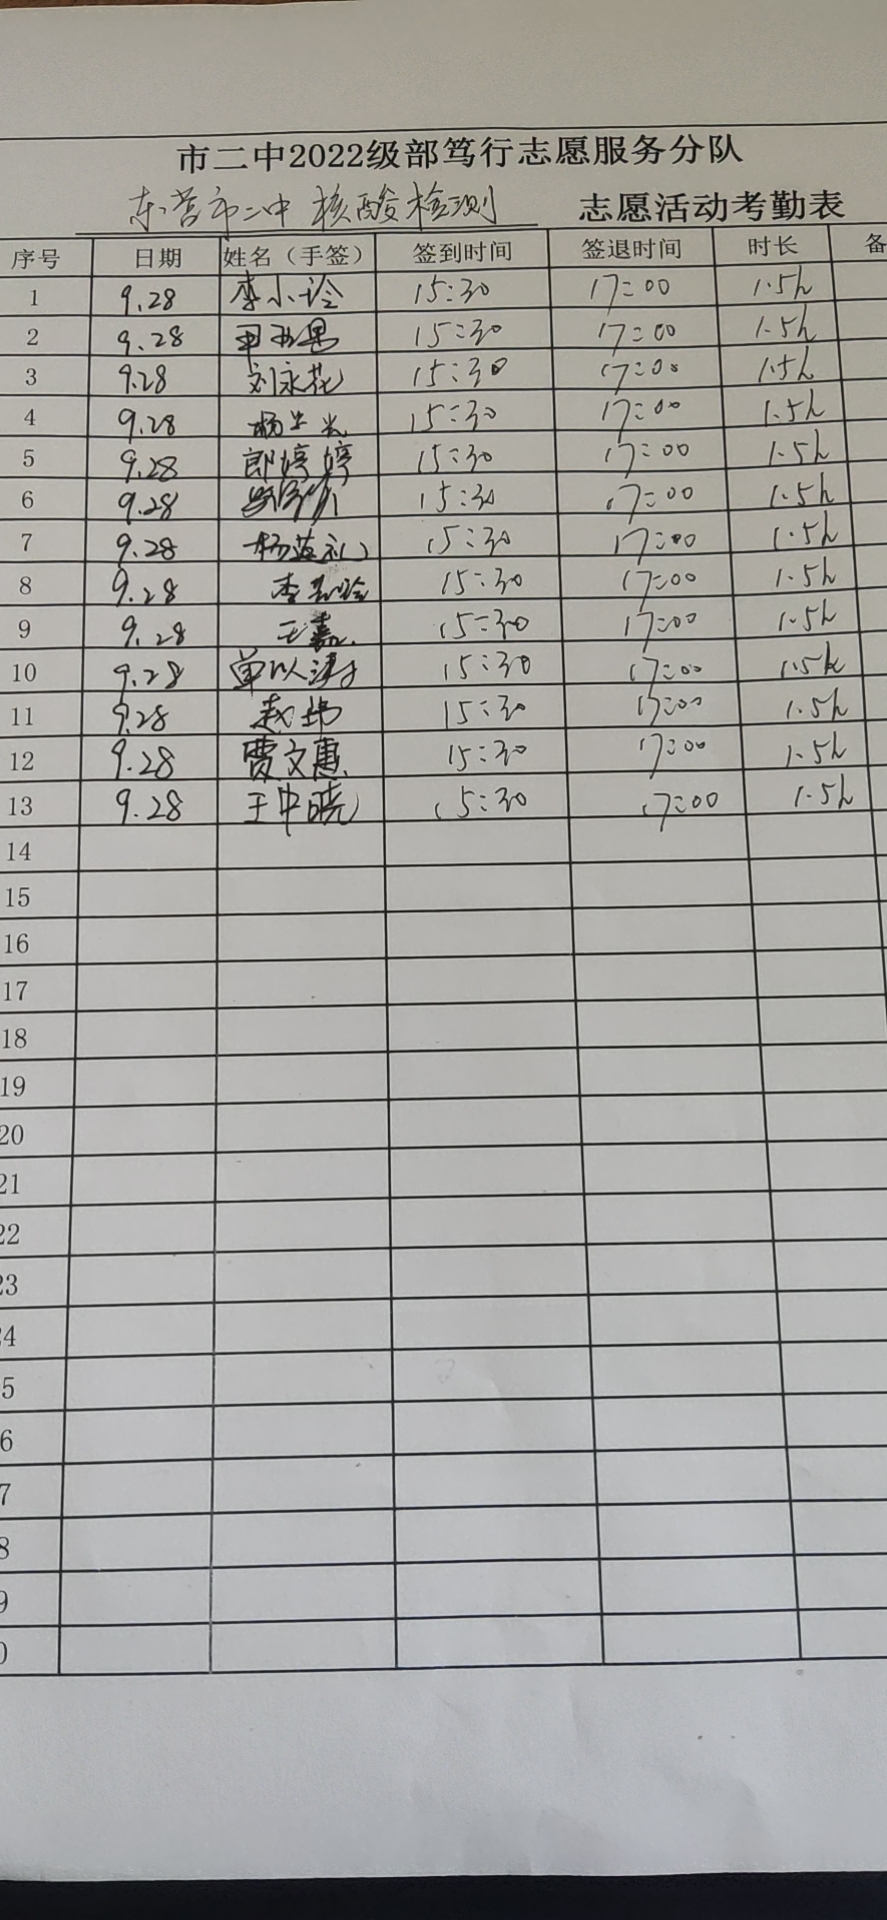 市二中2022级部笃行志愿服务分队
东营市二中 核酸检测 志愿活动考勤表
序号 日期 姓名（手签） 签到时间 签退时间 时长 备
1 9.28 李小玲 15:30 17:00 1.5h
2 9.28 15:30 17:00 1.5h
3 9.28 刘永花 15:30 17:00 1.5h
4 9.28 15:30 17:00 1.5h
5 9.28 郎婷婷 15:30 17:00 1.5h
6 9.28 15:30 17:00 1.5h
7 9.28 15:30 17:00 1.5h
8 9.28 15:30 17:00 1.5h
9 9.28 王嘉 15:30 17:00 1.5h
10 9.28 15:30 17:00 1.5h
11 9.28 15:30 17:00 1.5h
12 9.28 贾文惠 15:30 17:00 1.5h
13 9.28 王中晓 15:30 17:00 1.5h
14
15
16
17
18
19
20
21
22
23
24
5
6
7
8
9
0